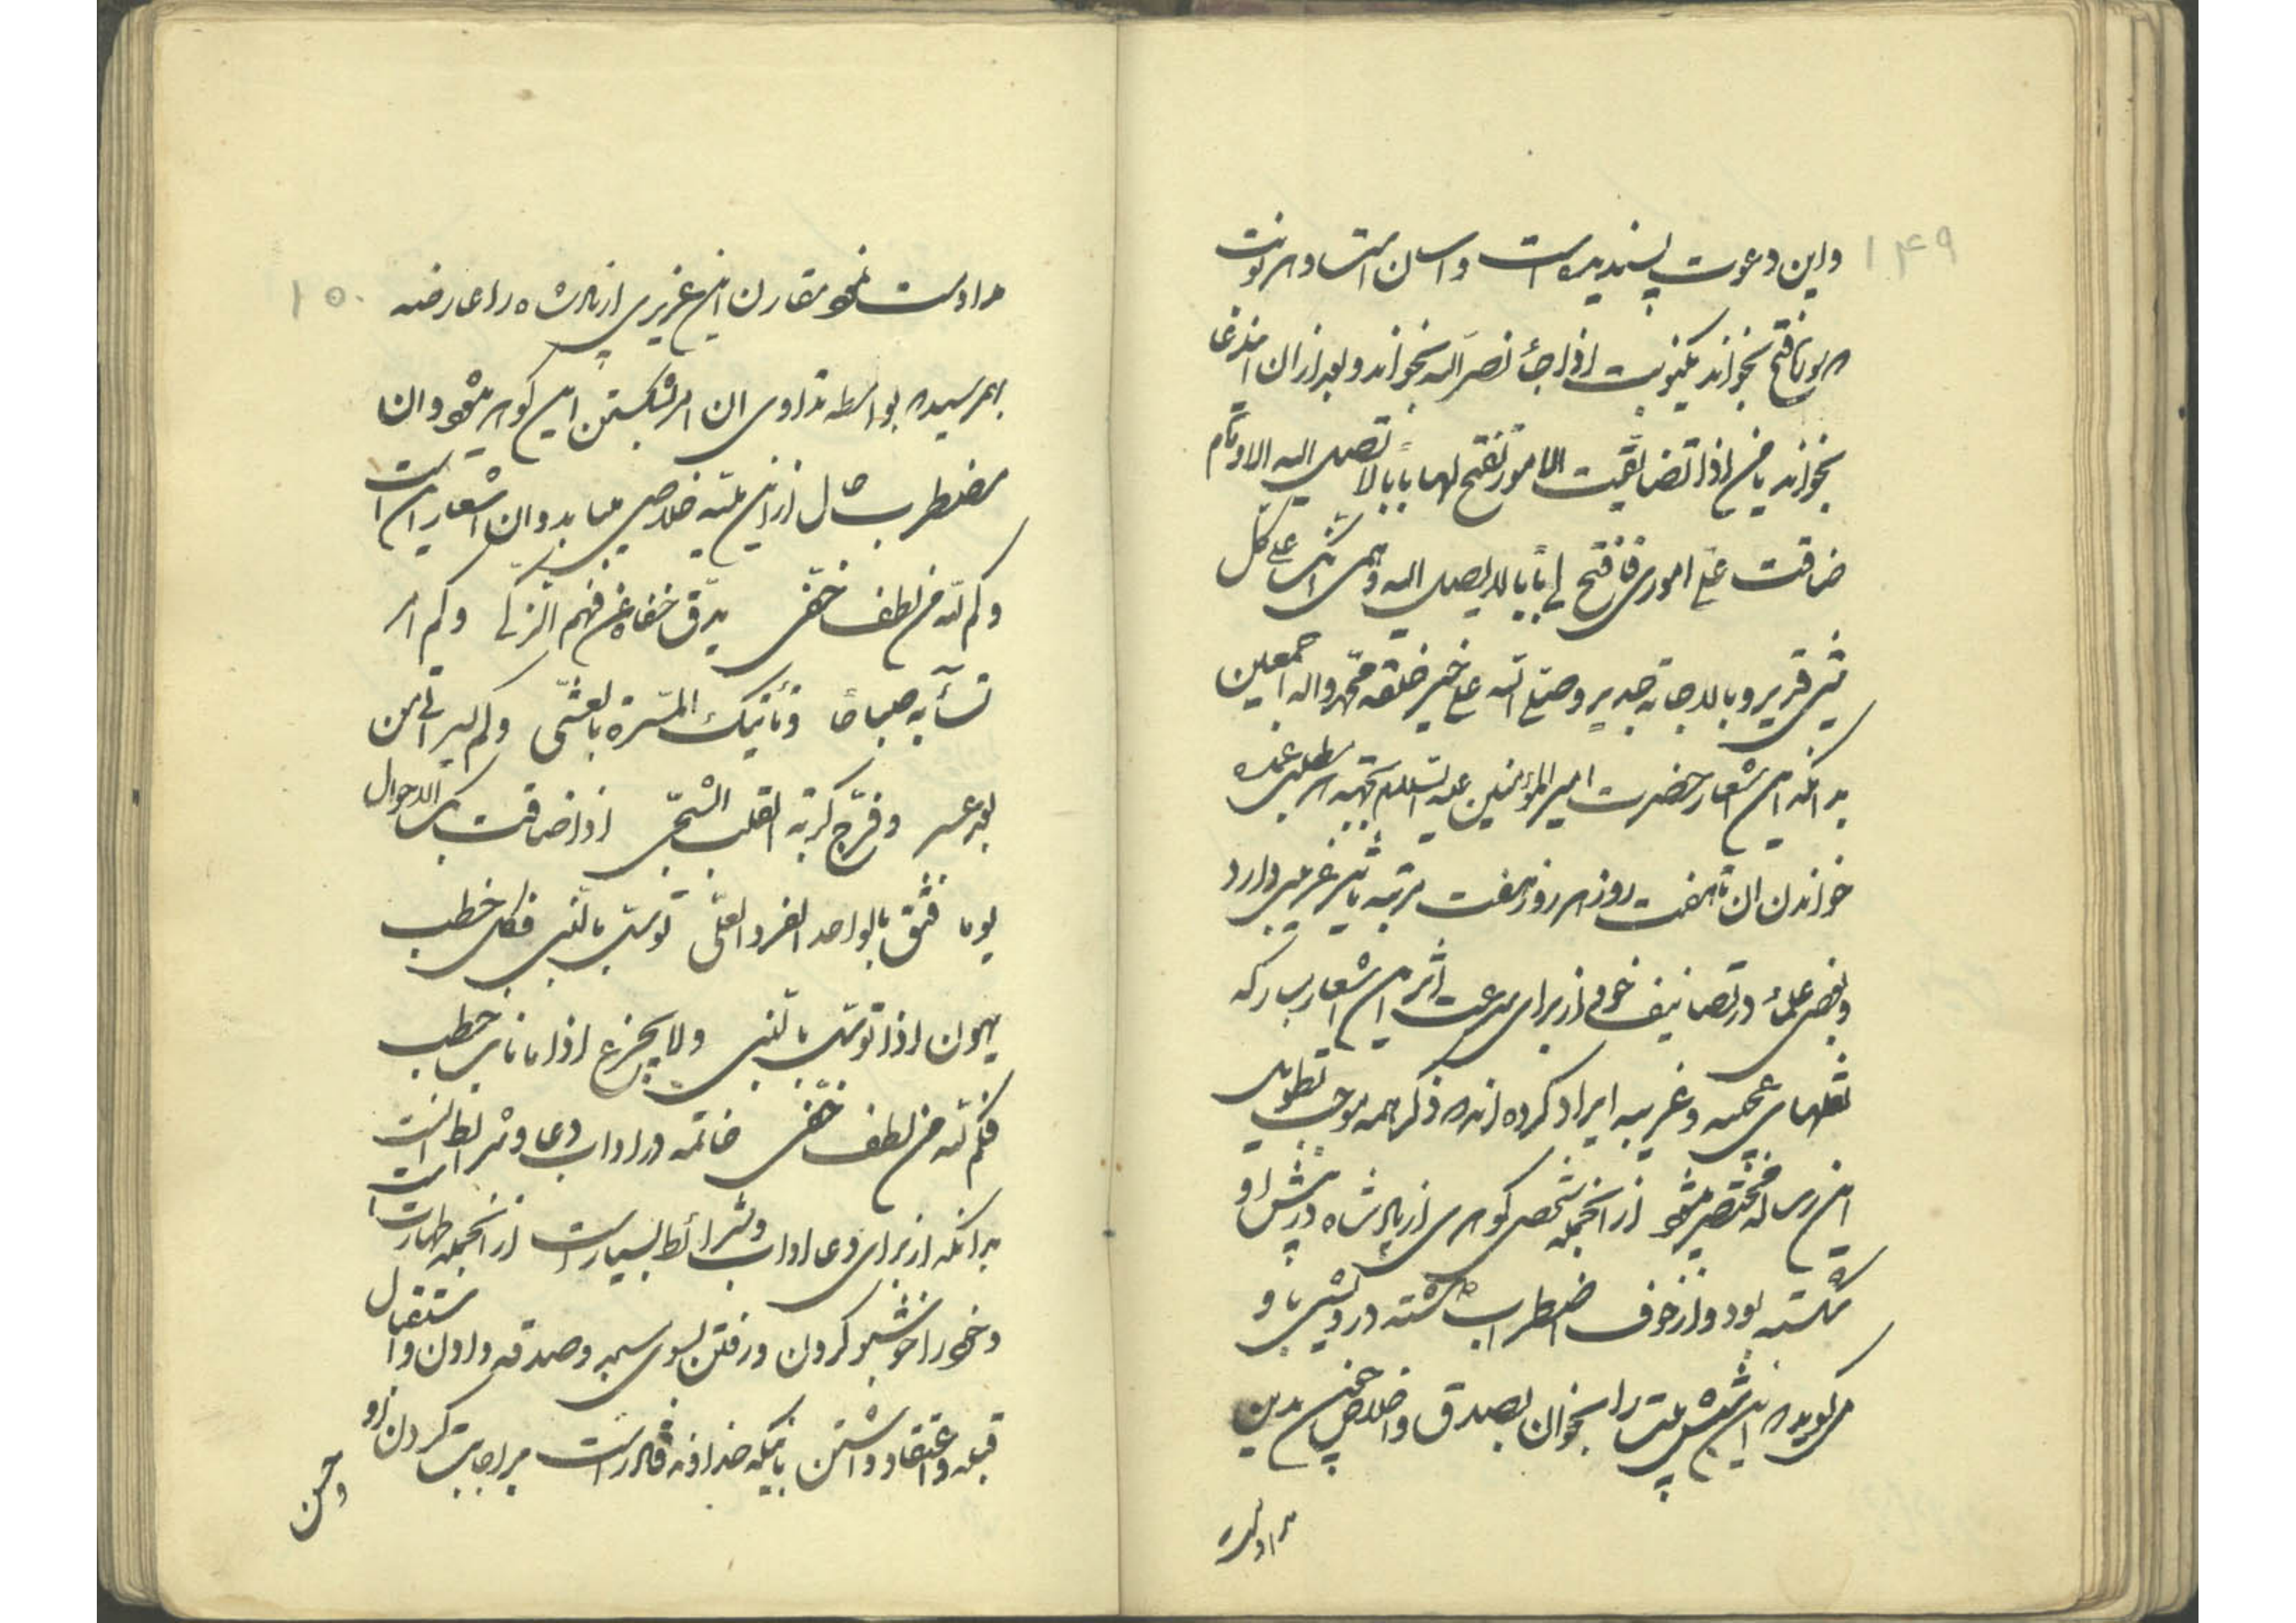 ۱۴۹
واین دعوت پسندیده است واسان است وهر نوبت
که یا فتح بخواند یکنوبت اذا جاء نصر الله بخواند وبعد از ان این دعا
بخواند یا من اذا تضایقت الامور تفتح لها بابا لا تصل الیه الاوهام
ضاقت علی اموری فافتح لی بابا لا یصل الیه وهمی انک علی کل
شیء قدیر وبالاجابة جدیر وصلی الله علی خیر خلقه محمد واله اجمعین
بدانکه این اشعار حضرت امیر المؤمنین علیه السلام بجهة هر مطلبی عمده
خواندن ان تا هفت روز هر روز هفت مرتبه تاثیر غریبی دارد
وبعضی علماء در تصانیف خود از برای سرعت اثر این اشعار مبارکه
نقلهای عجیبه وغریبه ایراد کرده اند که ذکر همه موجب تطویل
این رساله مختصر میشود از انجمله شخصی کوهری از پادشاه در پیش او
شکسته بود واز خوف اضطراب داشته درویشی باو
میکوید که این شش بیت را بخوان بصدق واخلاص بدین
مرادت
۱۵۰
مرادت نحو مقارن این عزیزی از پادشاه را عارضه
بهم رسیده بواسطه تداوی ان امر بشکستن این کوهر میشود وان
مضطرب حال از این بلیه خلاصی میابد وان اشعار این است
وکم لله من لطف خفی یدق خفاه عن فهم الزکی وکم امر
تسآء به صباحا وتأتیک المسرة بالعشی وکم یسر اتی من
بعد عسر وفرج کربة القلب الشجی اذا ضاقت بک الاحوال
یوما فثق بالواحد الفرد العلی توسل بالنبی فکل خطب
یهون اذا توسل بالنبی ولا تجزع اذا ما ناب خطب
فکم لله من لطف خفی خاتمه در اداب دعا وشرائط انست
بدانکه از برای دعا اداب وشرائط بسیار است از انجمله طهارت است
وخود را خوشبو کردن ورفتن بسوی مسجد وصدقه دادن واستقبال
قبله واعتقاد داشتن باینکه خداوند قادر است بر اجابت کردن او
وحسن